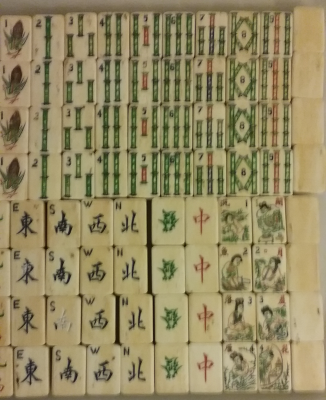 1 2 3 4 5 6 7 8 9
1 2 3 4 5 6 7 8 9
1 2 3 4 5 6 7 8 9
1 2 3 4 5 6 7 8 9
E 東 S 南 W 西 N 北 發 中 1
E 東 S 南 W 西 N 北 發 中 2 2
E 東 S 南 W 西 N 北 發 中 3 3
E 東 S 南 W 西 N 北 發 中